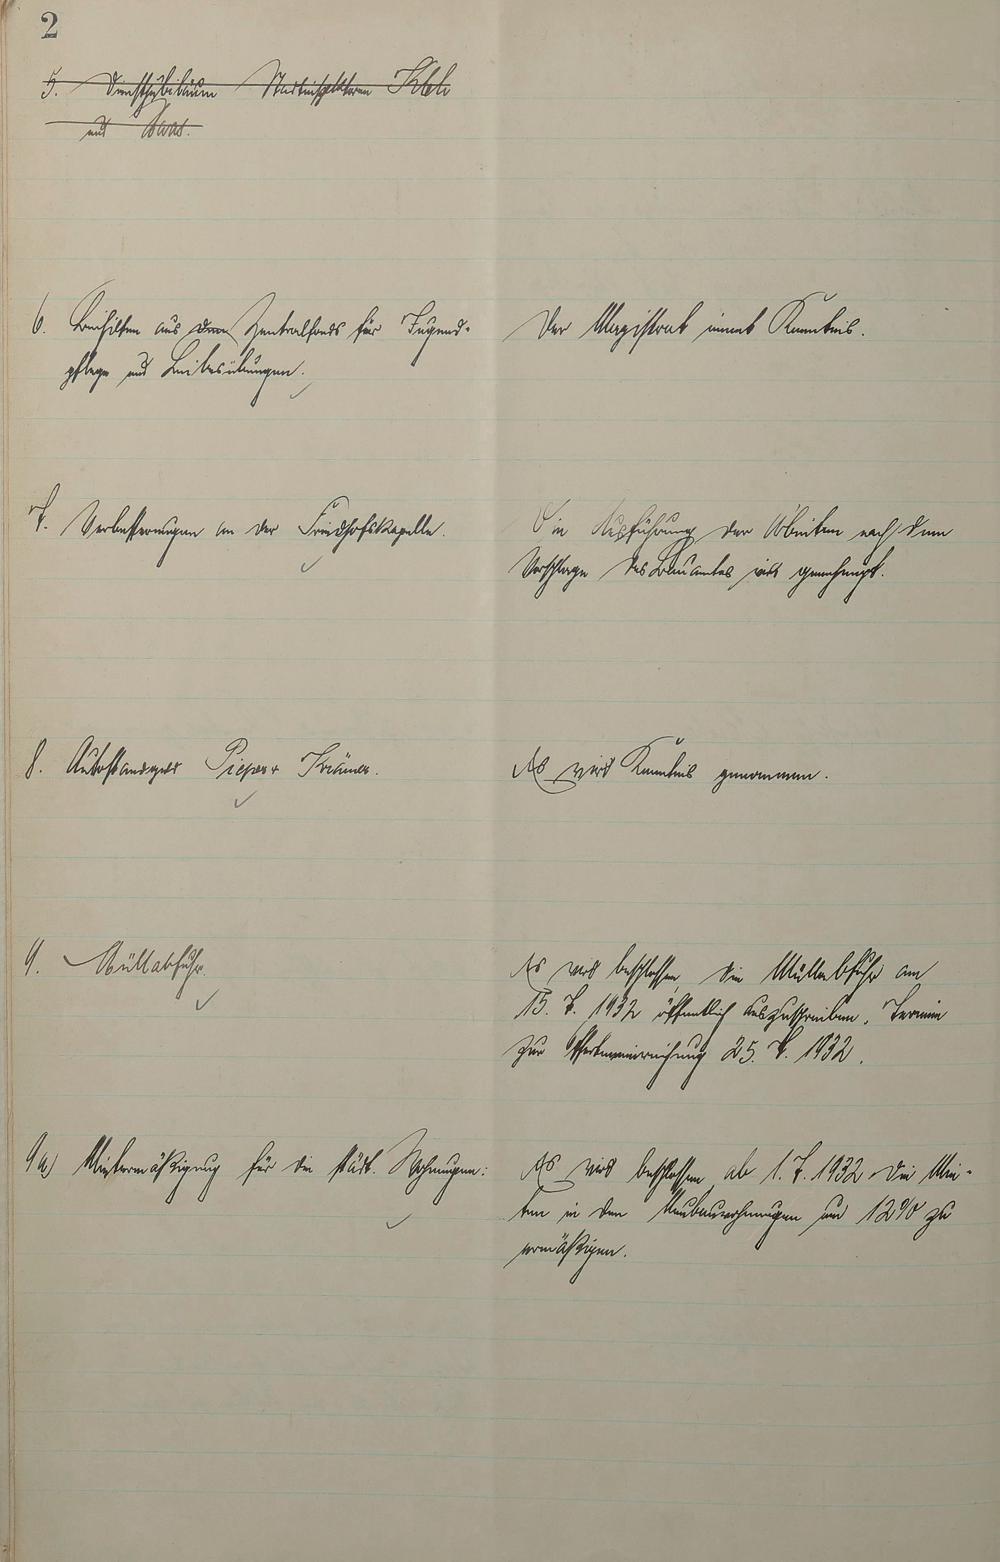 2
5. Dienstjubiläum Stadtinspektoren
und
6. Beihilfen aus dem Zentralfonds für Jugend-
pflege und Leibesübungen.
Der Magistrat nimmt Kenntnis.
7. Verbesserungen an der Friedhofskapelle.
Die Ausführung der Arbeiten nach dem
Vorschlage des Bauamtes wird genehmigt.
8. Pieper Krämer.
Es wird Kenntnis genommen.
9. Müllabfuhr.
Es wird beschlossen, die Müllabfuhr am
15. 7. 1932 öffentlich auszuschreiben. Termin
zur Offerteneinreichung 25. 7. 1932.
9a) Mietermäßigung für die städt. Wohnungen:
Es wird beschlossen, ab 1. 7. 1932 die Mie-
ten in den Neubauwohnungen um 12% zu
ermäßigen.